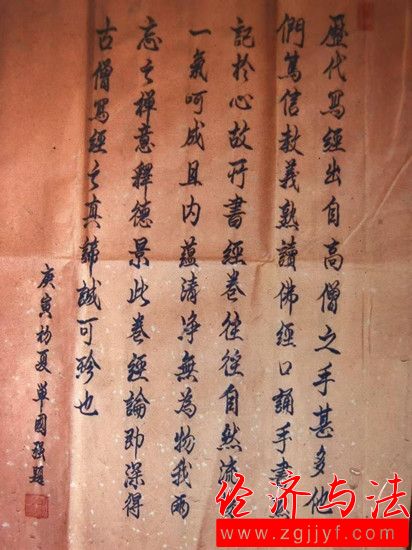 歷代寫經出自高僧之手甚多他
們篤信教義熟讀佛經口誦手書
記於心故所書經卷往往自然流
一氣呵成且内蘊清淨無為物我兩
忘之禪意釋德景此卷經論即深得
古僧寫經之真諦誠可珍也
庚寅初夏單國强題
经济与法
www.zgjjyf.com